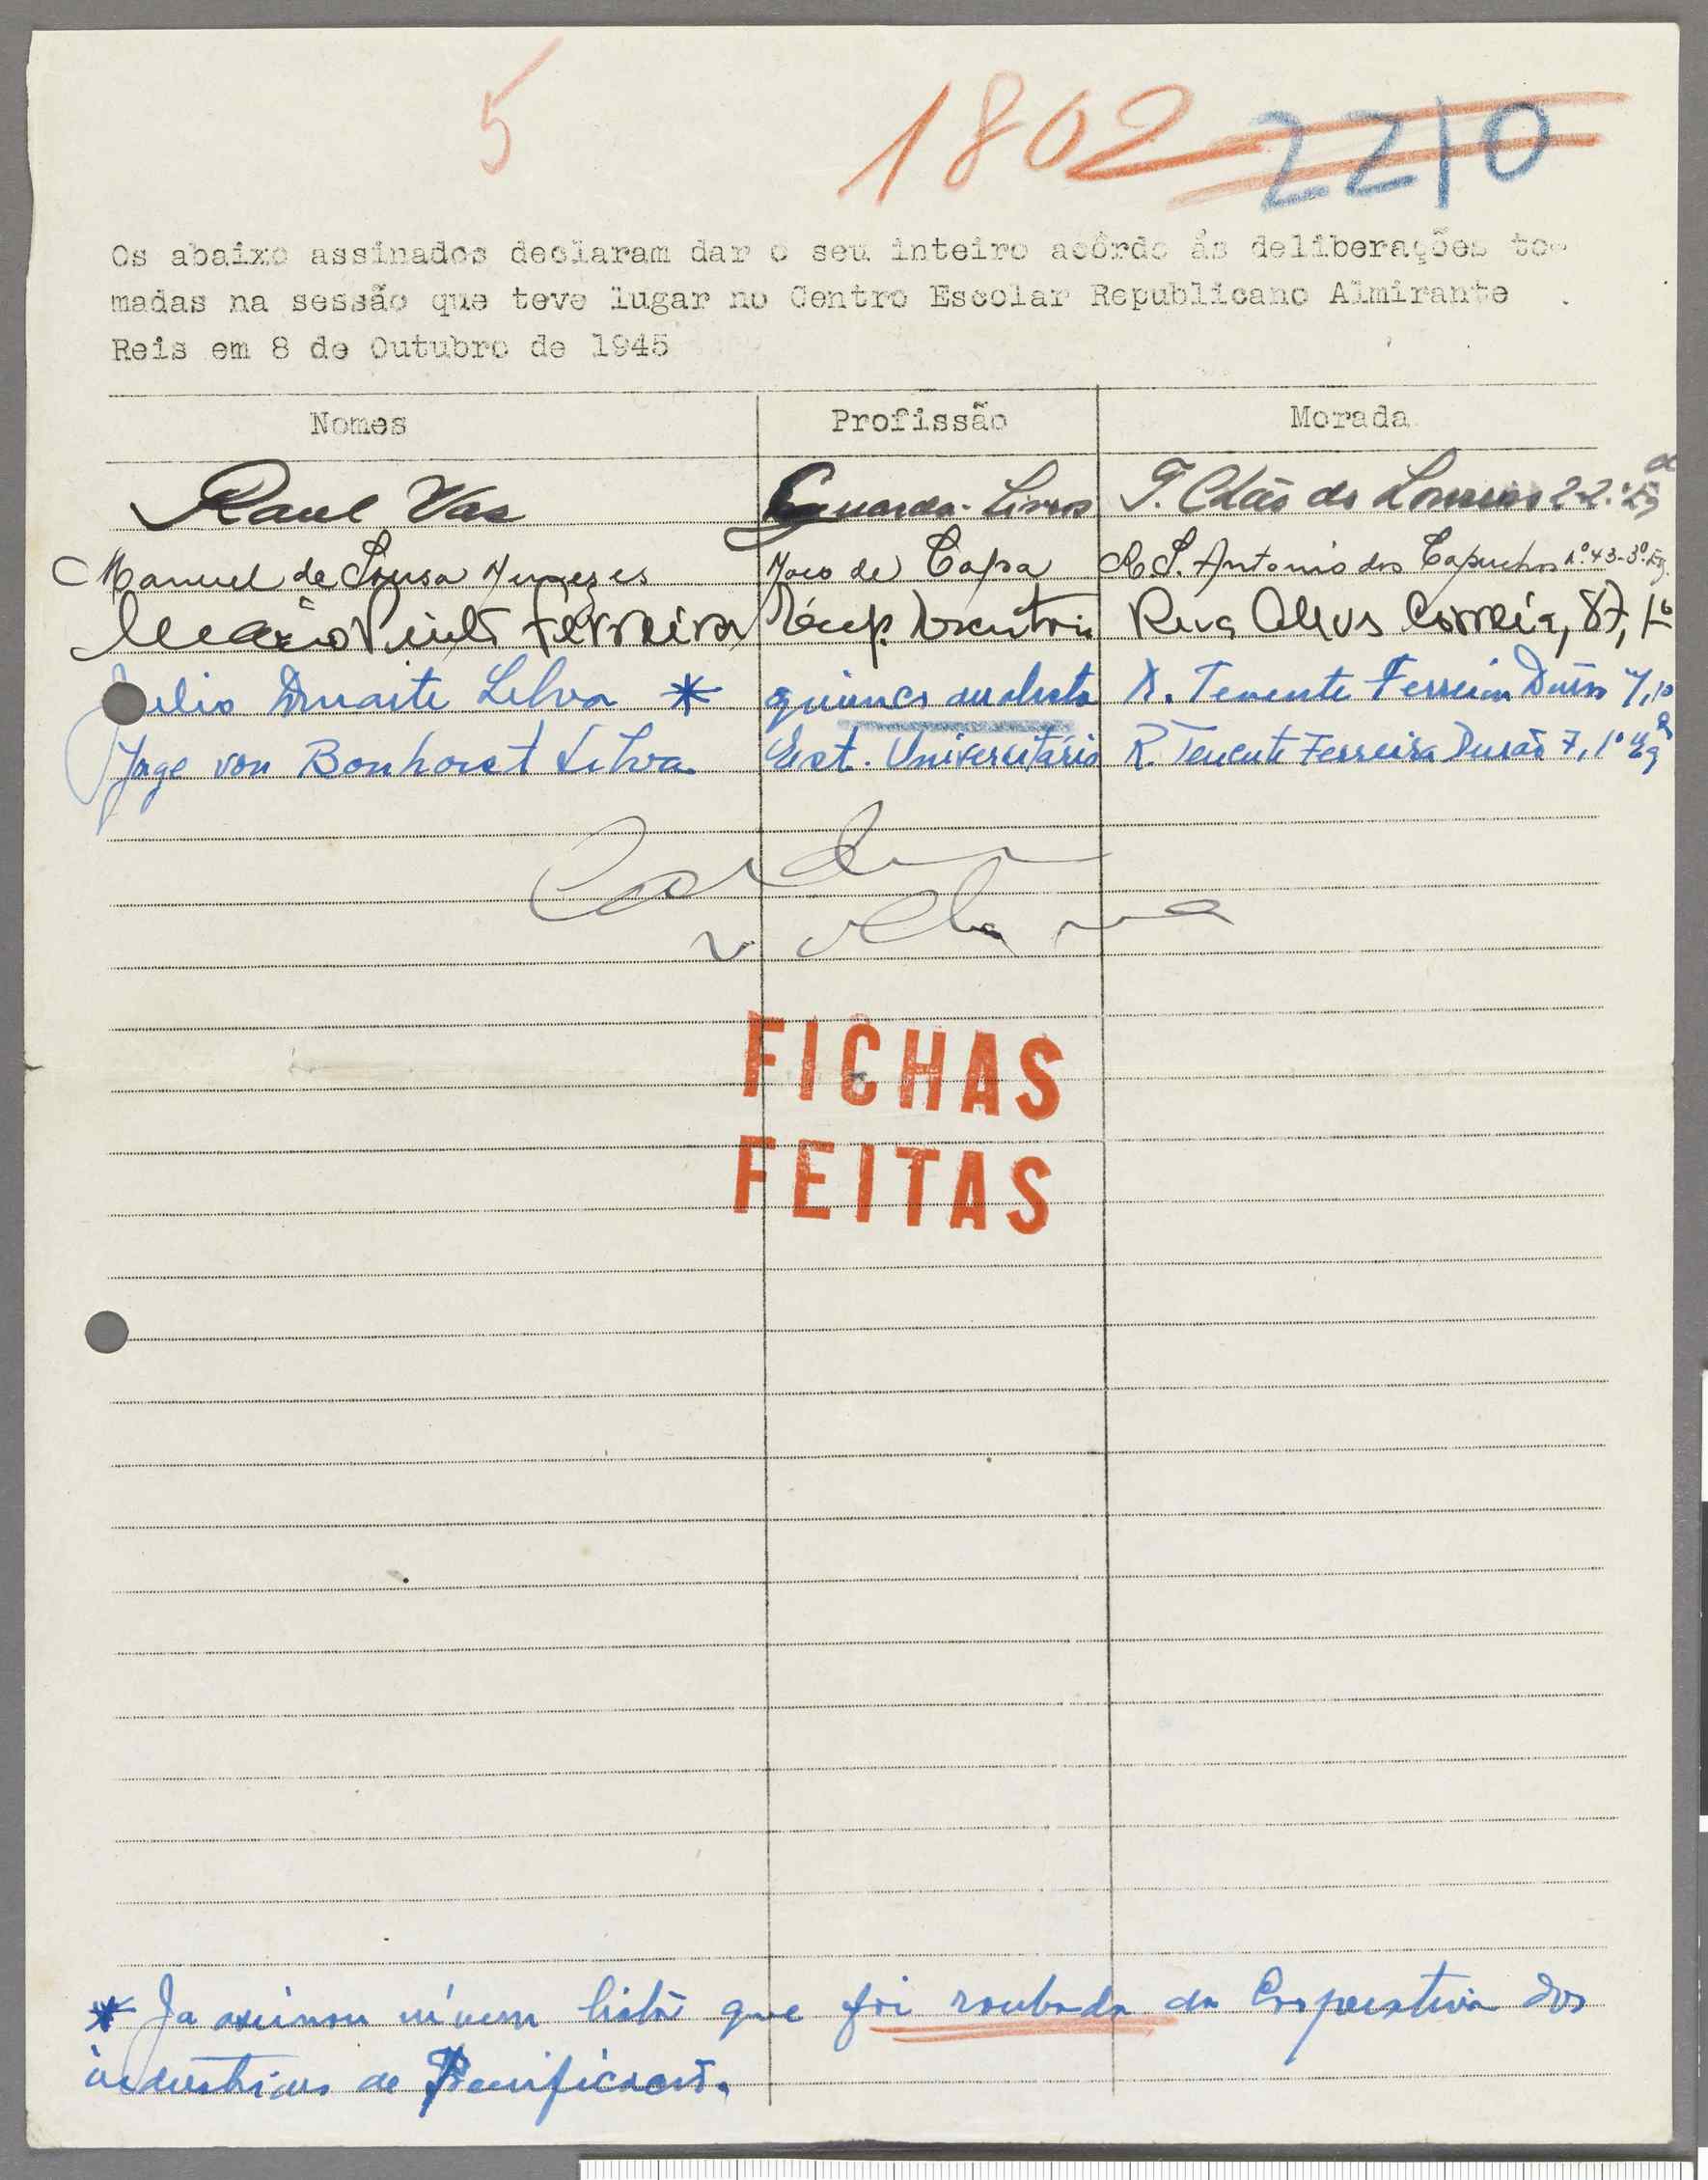 5
1802 2210
Os abaixo assinados declaram dar o seu inteiro acôrdo ás deliberações to-
madas na sessão que teve lugar no Centro Escolar Republicano Almirante
Reis em 8 de Outubro de 1945
Nomes Profissão Morada
Raul Vaz Guarda-Livros T. Chão do Loureiro 22 2º Eq
Manuel de Sousa Menezes Moço de Capa R. S. Antonio dos Capuchos nº 43-3º Eq.
Mário Pinto Ferreira Rua Alves Correia, 87, 1º
Julio Duarte Silva * quimico analista R. Tenente Ferreira Durão 7, 1º
Jorge von Bonhorst Silva Est. Universitário R. Tenente Ferreira Durão 7, 1º Eq
FICHAS
FEITAS
* Ja assinou n'uma lista que foi roubada da Cooperativa dos
industriaes de Panificação.